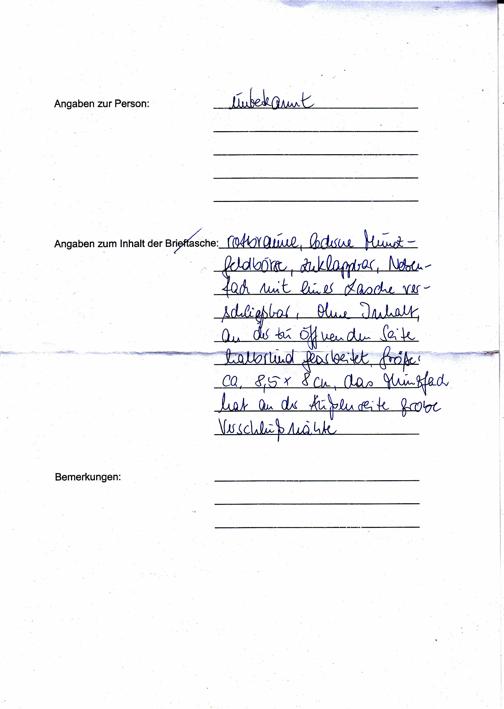 Angaben zur Person: unbekannt
Angaben zum Inhalt der Brieftasche: rotbraune, lederne Münz-
geldbörse, zuklappbar, Neben-
fach mit einer Lasche ver-
schließbar, ohne Inhalt,
an der zu öffnenden Seite
halbrund gearbeitet, Größe:
ca. 8,5 x 8 cm, das Münzfach
hat an der Außenseite grobe
Verschleißnähte
Bemerkungen: